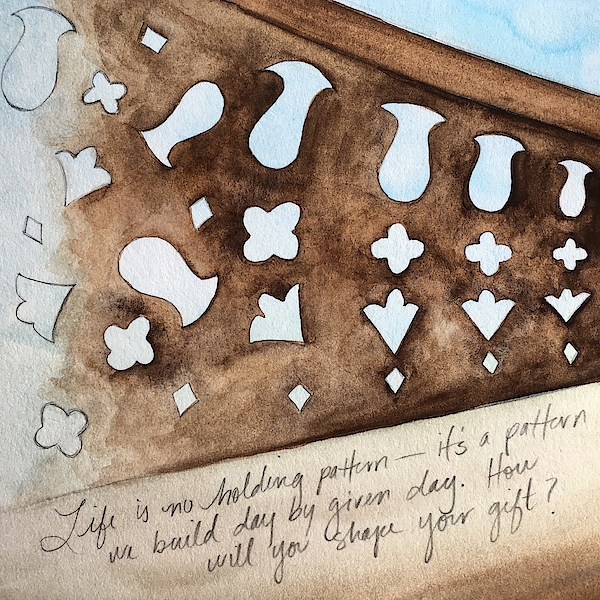 Life is no holding pattern — it's a pattern
we build day by given day. How
will you shape your gift?